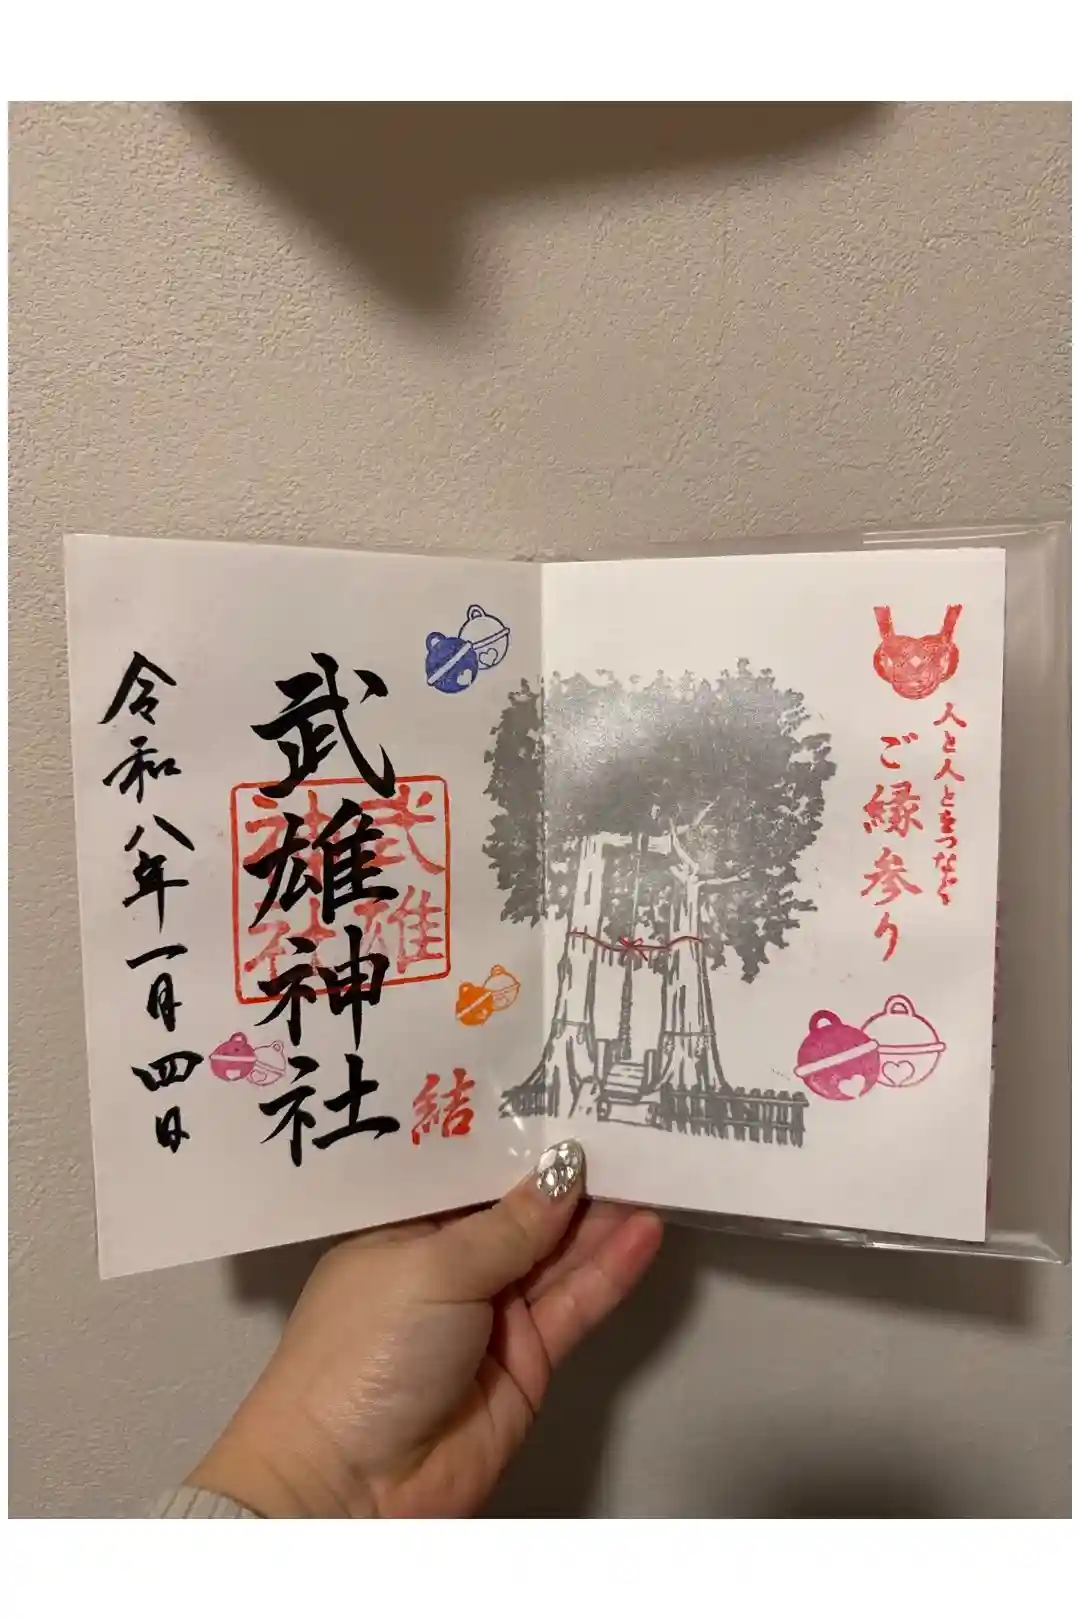 人と人とをつなぐ
ご縁参り
結
武雄神社
武雄
神社
令和八年一月四日